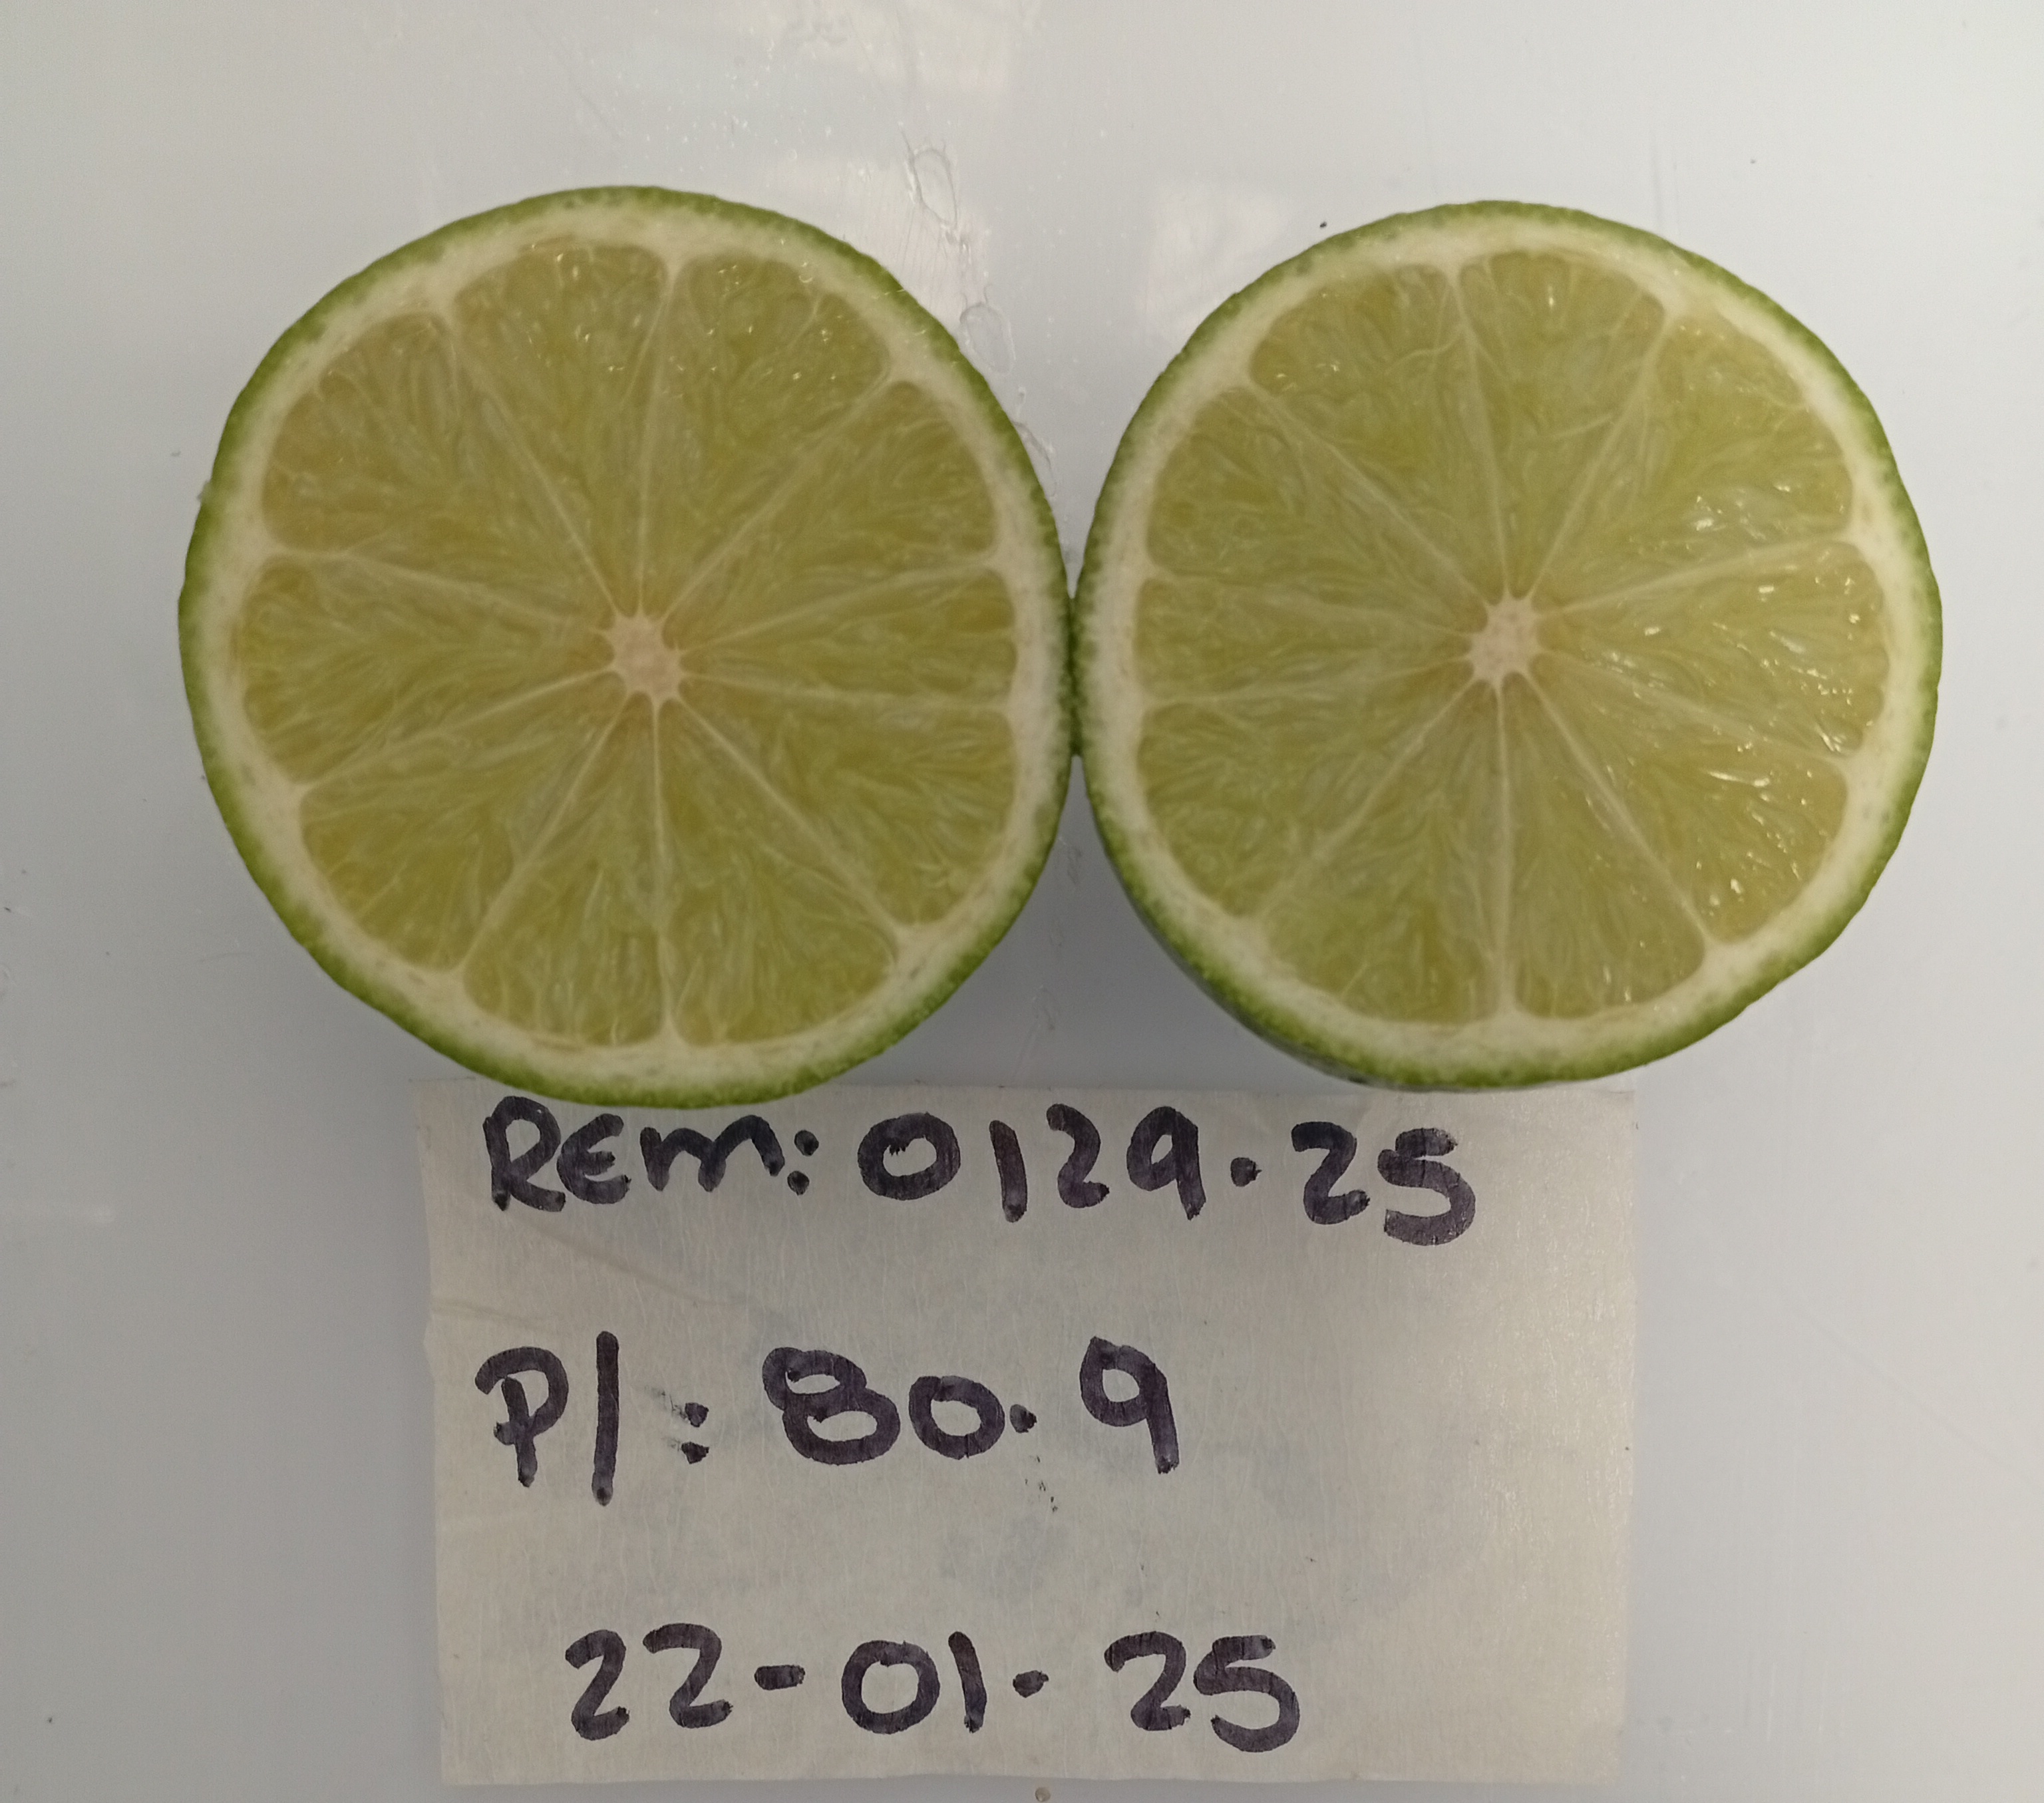 REM: 0129.25
P/: 80.9
22-01.25